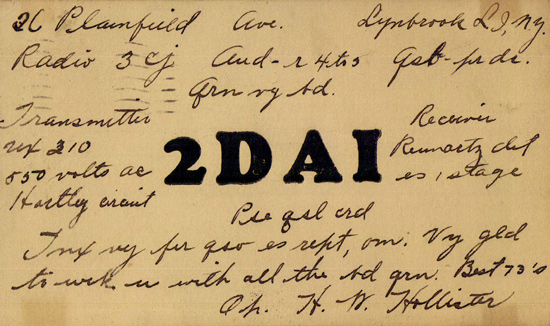 26 Plainfield Ave. Lynbrook L I, Ny.
Radio 3 cj Aud - r 4 to 5 Qsb - pr dc.
Qrn vy bd.
Transmitter
210
550 volts ac
Hartley circuit
2DAI
Receiver
Reinartz det
es 1 stage
Pse qsl crd
Tnx vy fer qso es rept, om. Vy gld
to wrk u with all the bd qrn. Best 73's
Op. H. W. Hollister